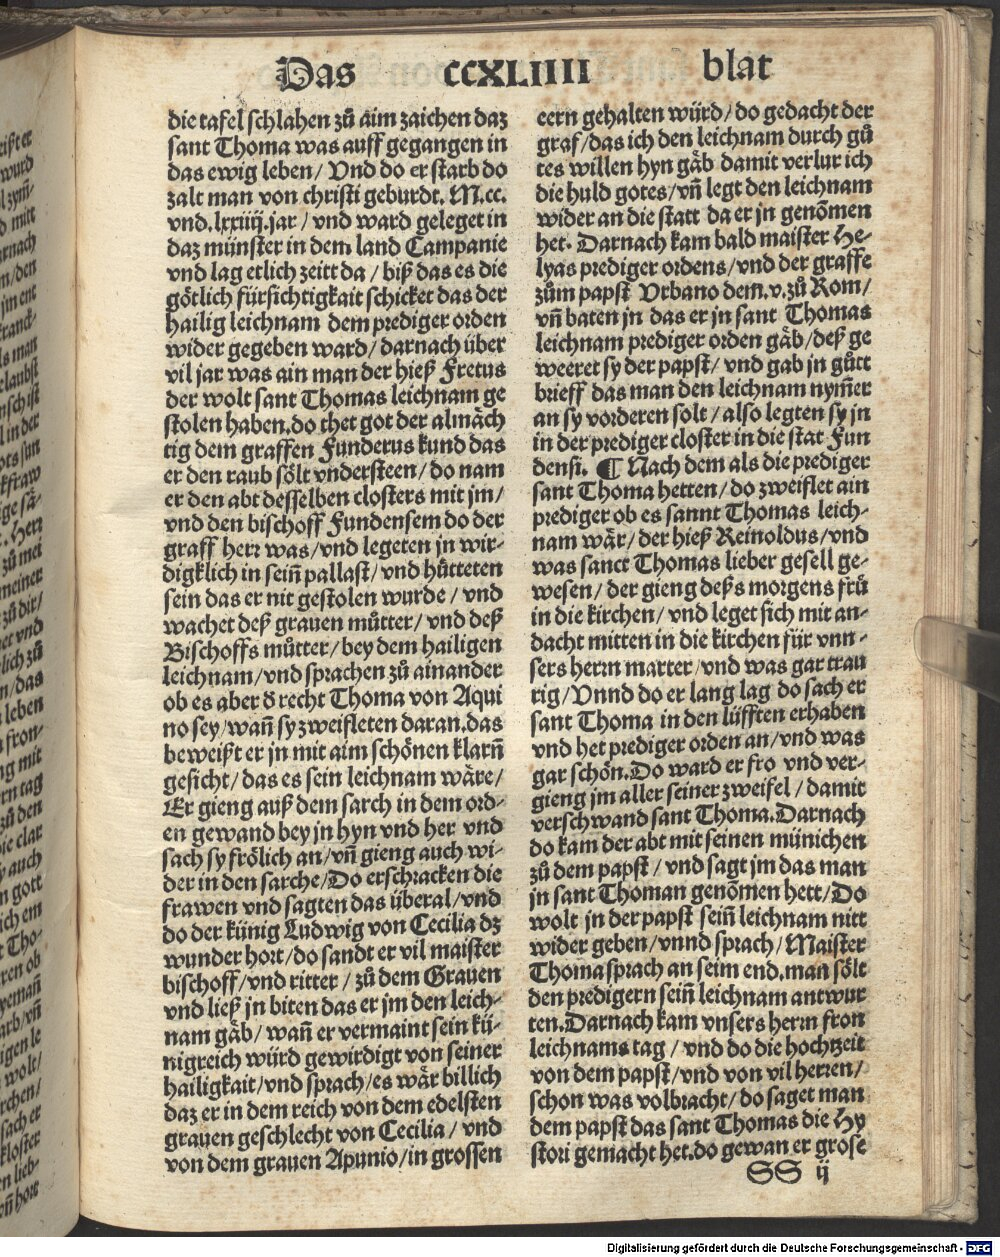 Das CCXLIIII blat
die tafel schlahen zů aim zaichen daz
sant Thoma was auff gegangen in
das ewig leben/ Vnd do er starb do
zalt man von christi geburdt. M.cc.
vnd. lxxiiij. jar/ vnd ward geleget in
daz münster in dem land Campanie
vnd lag etlich zeitt da/ biß das es die
götlich fürsichtigkait schicket das der
hailig leichnam dem prediger orden
wider gegeben ward/ darnach über
vil jar was ain man der hieß Fretus
der wolt sant Thomas leichnam ge
stolen haben. do thet got der almäch
tig dem graffen Funderus kund das
er den raub sölt vndersteen/ do nam
er den abt desselben closters mit jm/
vnd den bischoff Fundensem do der
graff herr was/ vnd legeten jn wir⸗
digklich in sein̄ pallast/ vnd hůtteten
sein das er nit gestolen wurde/ vnd
wachet deß grauen můtter/ vnd deß
Bischoffs můtter/ bey dem hailigen
leichnam/ vnd sprachen zů ainander
ob es aber d̕ recht Thoma von Aqui
no sey/ wan̄ sy zweifleten daran. das
beweißt er jn mit aim schönen klarn̄
gesicht/ das es sein leichnam wäre/
Er gieng auß dem sarch in dem ord⸗
en gewand bey jn hyn vnd her vnd
sach sy frölich an/ vn̄ gieng auch wi⸗
der in den sarche/ Do erschracken die
frawen vnd sagten das überal/ vnd
do der künig Ludwig von Cecilia dz
wunder hort/ do sandt er vil maister
bischoff/ vnd ritter/ zů dem Grauen
vnd ließ jn biten das er jm den leich⸗
nam gäb/ wan̄ er vermaint sein kü⸗
nigreich würd gewirdigt von seiner
hailigkait/ vnd sprach/ es wär billich
daz er in dem reich von dem edelsten
grauen geschlecht von Cecilia/ vnd
von dem grauen Apunio/ in grossen
eern gehalten würd/ do gedacht der
graf/ das ich den leichnam durch gů
tes willen hyn gäb damit verlur ich
die huld gotes/ vn̄ legt den leichnam
wider an die statt da er jn genōmen
het. Darnach kam bald maister He⸗
lyas prediger ordens/ vnd der graffe
zům papst Vrbano dem. v. zů Rom/
vn̄ baten jn das er jn sant Thomas
leichnam prediger orden gäb/ deß ge
weeret sy der papst/ vnd gab jn gůtt
brieff das man den leichnam nym̄er
an sy vorderen solt/ also legten sy jn
in der prediger closter in die stat Fun
densi. ¶ Nach dem als die prediger
sant Thoma hetten/ do zweiflet ain
prediger ob es sannt Thomas leich⸗
nam wär/ der hieß Reinoldus/ vnd
was sanct Thomas lieber gesell ge⸗
wesen/ der gieng deßs morgens frü
in die kirchen/ vnd leget sich mit an⸗
dacht mitten in die kirchen für vnn⸗
sers herrn marter/ vnd was gar trau
rig/ Vnnd do er lang lag do sach er
sant Thoma in den lüfften erhaben
vnd het prediger orden an/ vnd was
gar schön. Do ward er fro vnd ver⸗
gieng jm aller seiner zweifel/ damit
verschwand sant Thoma. Darnach
do kam der abt mit seinen münichen
zů dem papst/ vnd sagt jm das man
jn sant Thoman genōmen hett/ Do
wolt jn der papst sein̄ leichnam nitt
wider geben/ vnnd sprach/ Maister
Thoma sprach an seim end. man sölt
den predigern sein̄ leichnam antwur
ten. Darnach kam vnsers herrn fron
leichnams tag/ vnd do die hochtzeit
von dem papst/ vnd von vil herren/
schon was volbracht/ do saget man
dem papst das sant Thomas die Hy
stori gemacht het. do gewan er grose
SS ij
Digitalisierung gefördert durch die Deutsche Forschungsgemeinschaft - DFG